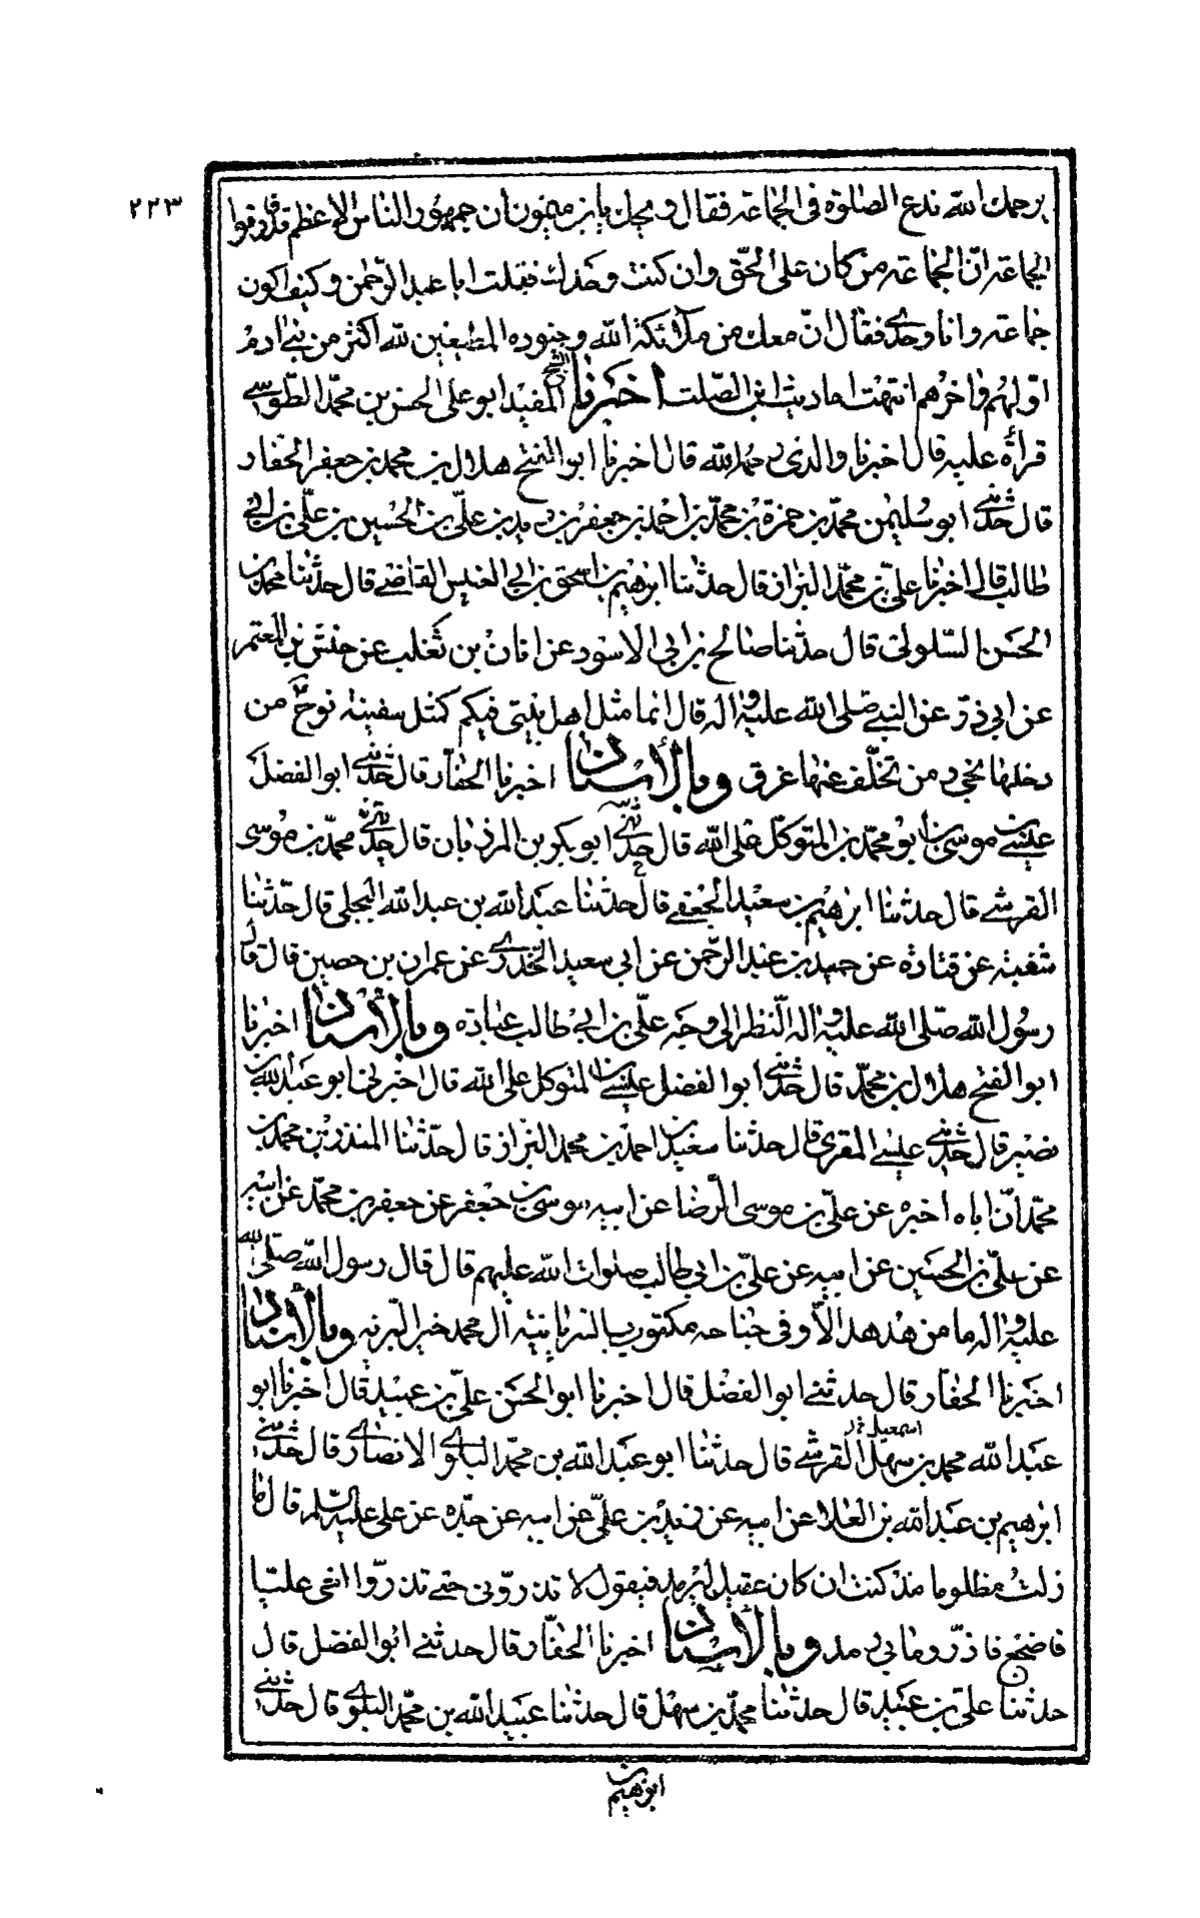 ٢٢٣
يرحمك الله ندع الصلوة في الجماعة فقال ويحك يابن ميمون ان جمهور الناس الاعظم قد فارقوا
الجماعة انّ الجماعة من كان على الحقّ وان كنت وحدك فقلت ابا عبد الرّحمن وكيف اكون
جماعة وانا وحدي فقال انّ معك من ملائكة الله وجنوده المطيعين لله اكثر من بني ادم
اوّلهم واخرهم انتهت احاديث ابن الصّلت اخبرنا الشيخ المفيد ابو علي الحسن بن محمّد الطّوسي
قراءة عليه قال اخبرنا والدي رحمه الله قال اخبرنا ابو الفتح هلال بن محمد بن جعفر الحفار
قال حدّثني ابو سليمن محمّد بن حمزة بن محمّد بن احمد بن جعفر بن زيد بن عليّ بن الحسين بن عليّ بن ابي
طالب قال اخبرنا عليّ بن محمّد البزاز قال حدثنا ابرهيم بن اسحق بن ابي العنبس القاضي قال حدّثنا محمد بن
الحسن السّلولي قال حدثنا صالح بن ابي الاسود عن ابان بن تغلب عن حنش بن المعتمر
عن ابي ذرّ عن النبي صلى الله عليه واله قال انما مثل اهل بيتي فيكم كمثل سفينة نوحٍ من
دخلها نجى ومن تخلّف عنها غرق وبالاسناد اخبرنا الحفّار قال حدّثني ابو الفضل
عيسى بن موسى بن ابو محمّد بن المتوكّل على الله قال حدّثني ابو بكر بن المرزبان قال حدّثني محمّد بن موسى
القرشي قال حدثنا ابرهيم بن سعيد الجعفي قال حدّثنا عبد الله بن عبد الله البجلي قال حدّثنا
شعبة عن قتادة عن حميد بن عبد الرّحمن عن ابي سعيد الخدري عن عمران بن حصين قال قال
رسول الله صلى الله عليه واله النّظر الى وجه عليّ بن ابي طالب عبادة وبالاسناد اخبرنا
ابو الفتح هلال بن محمّد قال حدّثني ابو الفضل عيسى بن المتوكل على الله قال اخبرني ابو عبد الله بن
نصير قال حدّثني عيسى المقري قال حدثنا سعيد بن احمد بن محمد البزاز قال حدّثنا المنذر بن محمد بن
محمّد انّ اباه اخبره عن عليّ بن موسى الرّضا عن ابيه موسى بن جعفر عن جعفر بن محمّد عن ابيه
عن عليّ بن الحسين عن ابيه عن عليّ بن ابي طالب صلوات الله عليهم قال قال رسول الله صلّى الله
عليه واله ما من هدهد الاّ وفي جناحه مكتوب بالسريانية آل محمد خير البرية وبالاسناد
اخبرنا الحفّار قال حدثني ابو الفضل قال اخبرنا ابو الحسن عليّ بن عبيد قال اخبرنا ابو
اسمعيل
عبد الله محمد بن سهل القرشي قال حدثنا ابو عبد الله بن محمّد البلوي الانصاري قال حدّثني
ابرهيم بن عبد الله بن العلا عن ابيه عن زيد بن عليّ عن ابيه عن جدّه عن علي عليه السلم قال ما
زلت مظلوما منذ كنت ان كان عقيل ليرمد فيقول لا تذروّني حتى تذروّا اخي عليّا
فاضجع فاذرّ وما بي رمد وبالاسناد اخبرنا الحفّار قال حدثني ابو الفضل قال
حدثنا عليّ بن عبيد قال حدثنا محمّد بن سهل قال حدثنا عبيد الله بن محمّد البلوي قال حدّثني
ابرهيم بن